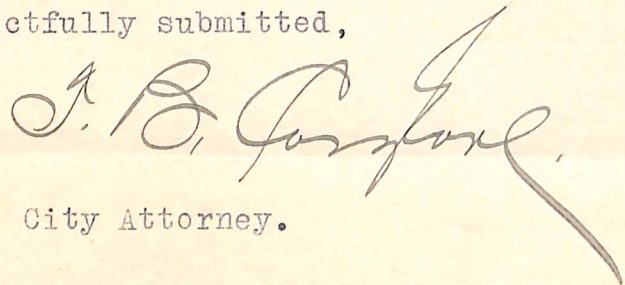 ctfully submitted,
T. B. Cosgrove.
City Attorney.